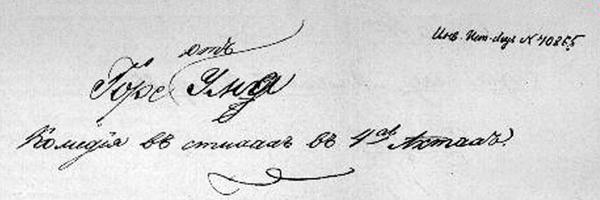 Инв. Ист-Муз N
Горе отъ Ума
Комедія въ стихахъ въ 4хъ Актахъ.